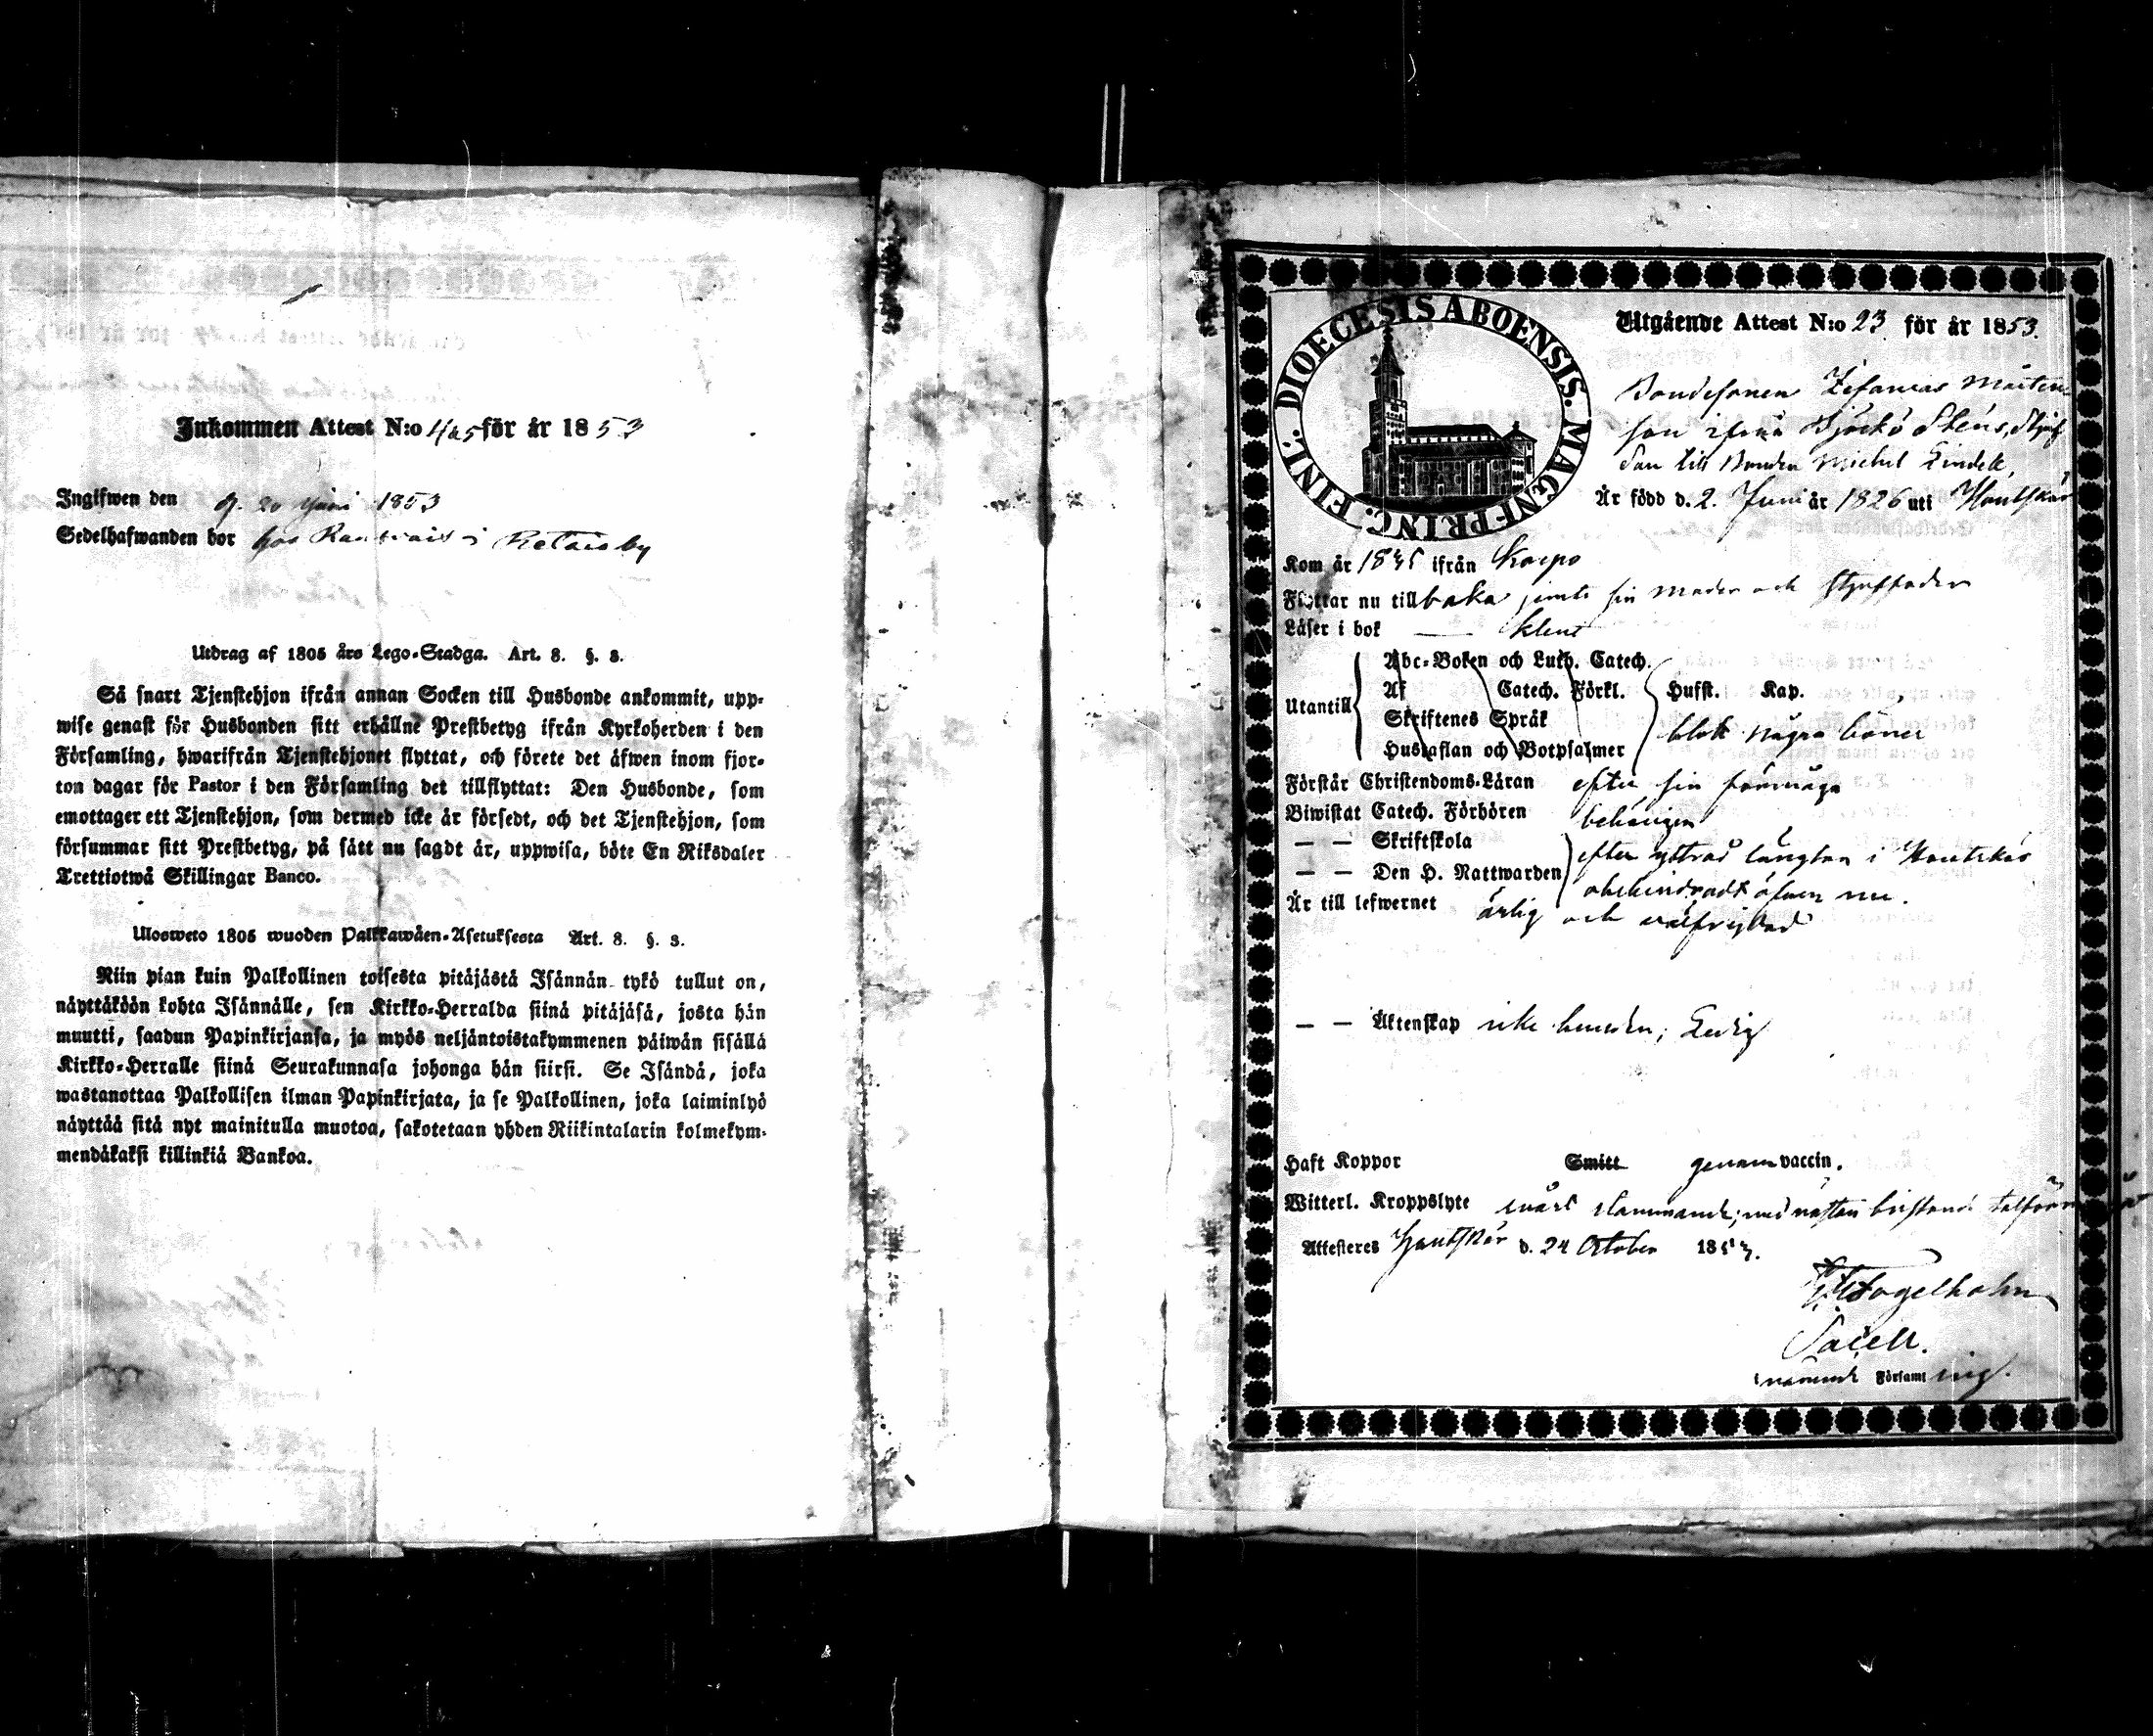 Inkommen Attest N:o för år 1853
Ingifwen den 20 Juni 1853
Sedelhafwanden bor hos i Retais by
Utdrag af 1805 års Lego-Stadga. Art. 8. §. 3.
Så snart Tjenstehjon ifrån annan Socken till Husbonde ankommit, upp-
wise genast för Husbonden sitt erhållne Prestbetyg ifrån Kyrkoherden i den
Församling, hwarifrån Tjenstehjonet flyttat, och förete det äfwen inom fjor-
ton dagar för Pastor i den Församling det tillflyttat: Den Husbonde, som
emottager ett Tjenstehjon, som dermed icke är försedt, och det Tjenstehjon, som
försummar sitt Prestbetyg, på sätt nu sagdt är, uppwisa, böte En Riksdaler
Trettiotwå Skillingar Banco.
Ulosweto 1805 wuoden Palkkawäen-Asetuksesta Art. 8. §. 3.
Niin pian kuin Palkollinen toisesta pitäjästä Isännän tykö tullut on,
näyttäköön kohta Isännälle, sen Kirkko-Herralda siinä pitäjäsä, josta hän
muutti, saadun Papinkirjansa, ja myös neljäntoistakymmenen päiwän sisällä
Kirkko-Herralle siinä Seurakunnasa johonga hän siirsi. Se Isändä, joka
wastanottaa Palkollisen ilman Papinkirjata, ja se Palkollinen, joka laiminlyö
näyttää sitä nyt mainitulla muotoa, sakotetaan yhden Riikintalarin kolmekym-
mendäkaksi killinkiä Bankoa.
DIOECESIS ABOENSIS. MAGNI-PRINC. FINL.
Utgående Attest N:o 23 för år 1853.
Bondesonen Zefanias Mårten-
son ifrån Björkö Stens, Styf
son till Bonden Michel Lindell,
Är född d. 2. Juni år 1826 uti Houtskär
Kom år ifrån Korpo
Flyttar nu tillbaka jemte sin moder och styffader
Läser i bok — klent
Utantill
Abc-Boken och Luth. Catech.
Af Catech. Förkl. Husst. Kap.
Skriftenes Språk
Hustaflan och Botpsalmer
blott några böner
Förstår Christendoms-Läran efter sin förmåga
Biwistat Catech. Förhören behörigen
— — Skriftskola efter yttrad längtan i Houtskär
— — Den H. Nattwarden obehindradt äfven nu.
Är till lefwernet ärlig och välfrejdad
— — Äktenskap icke bunden; Ledig
Haft Koppor Smitt genom vaccin.
Witterl. Kroppslyte svårt stammande; med nästan bristande
Attesteres Houtskär d. 24 October 1853.
Fogelholm
Sacell.
Församl ing.